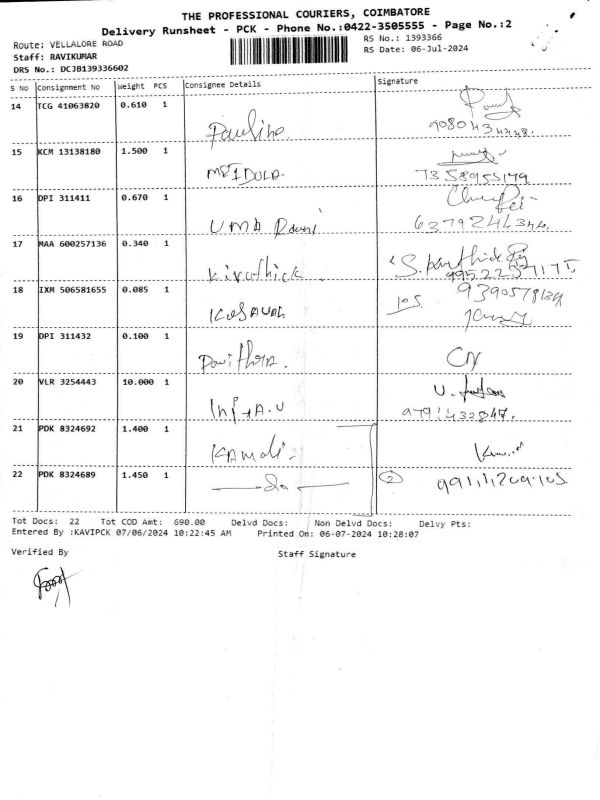 THE PROFESSIONAL COURIERS, COIMBATORE
Delivery Runsheet - PCK - Phone No.:0422-3505555 - Page No.:2
Route: VELLALORE ROAD
RS No.: 1393366
Staff: RAVIKUMAR
RS Date: 06-Jul-2024
DRS No.: DCJB139336602
S No Consignment No Weight PCS Consignee Details Signature
14 TCG 41063820 0.610 1
Pauline
15 KCM 13138180 1.500 1
7358955149
16 DPI 311411 0.670 1
UMA Rani 6379244344
17 MAA 600257136 0.340 1
Kirothick S. Karthick
18 IXM 506581655 0.085 1
105
19 DPI 311432 0.100 1
Pavithra. CN
20 VLR 3254443 10.000 1
9791432847.
21 PDK 8324692 1.400 1
Kamali-
22 PDK 8324689 1.450 1
2
Tot Docs: 22 Tot COD Amt: 690.00 Delvd Docs: Non Delvd Docs: Delvy Pts:
Entered By :KAVIPCK 07/06/2024 10:22:45 AM Printed On: 06-07-2024 10:28:07
Verified By Staff Signature